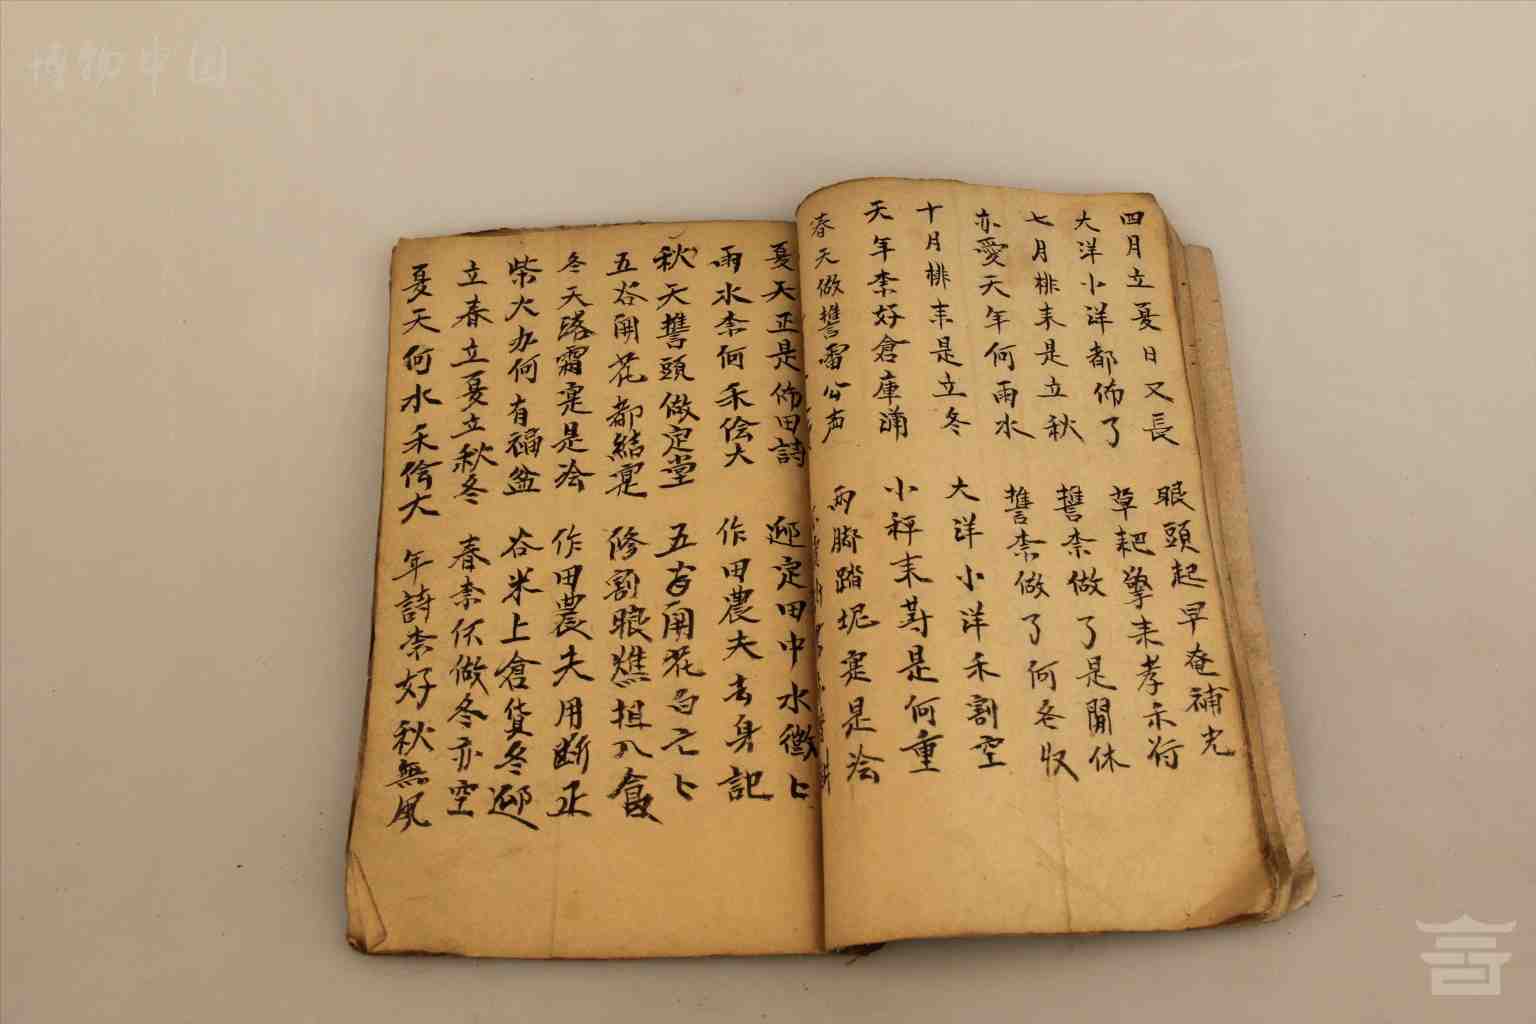 博物中国
四月立夏日又長 眼頭起早奄補光
大洋小洋都佈了 草耙擎来孝示行
七月桃来是立秋 誓柰做了是閒休
亦愛天年何雨水 誓柰做了何冬收
十月桃来是立冬 大洋小洋禾割空
天年柰好倉庫滿 小秤来対是何重
春天做誓雷公声 兩脚踏坭寔是浍
夏天正是佈田詩 迎定田中水徵上
雨水柰何禾佮大 作田農夫去身記
秋天誓頭做定堂 五谷開花
五谷開花都結寔 修割眼
冬天落霜寔是浍 作田農夫用断正
柴火办何有福盆 谷米上倉貨冬迎
立春立夏立秋冬 春柰伓做冬亦空
夏天何水禾佮大 年詩柰好秋無風